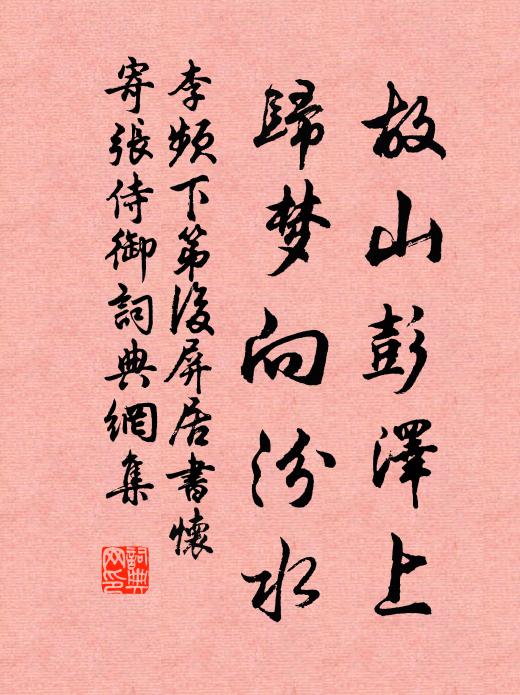 故山彭澤上
歸梦向汾水
李頻下第後屏居書懷
寄張侍御詞典網集
詞典网印